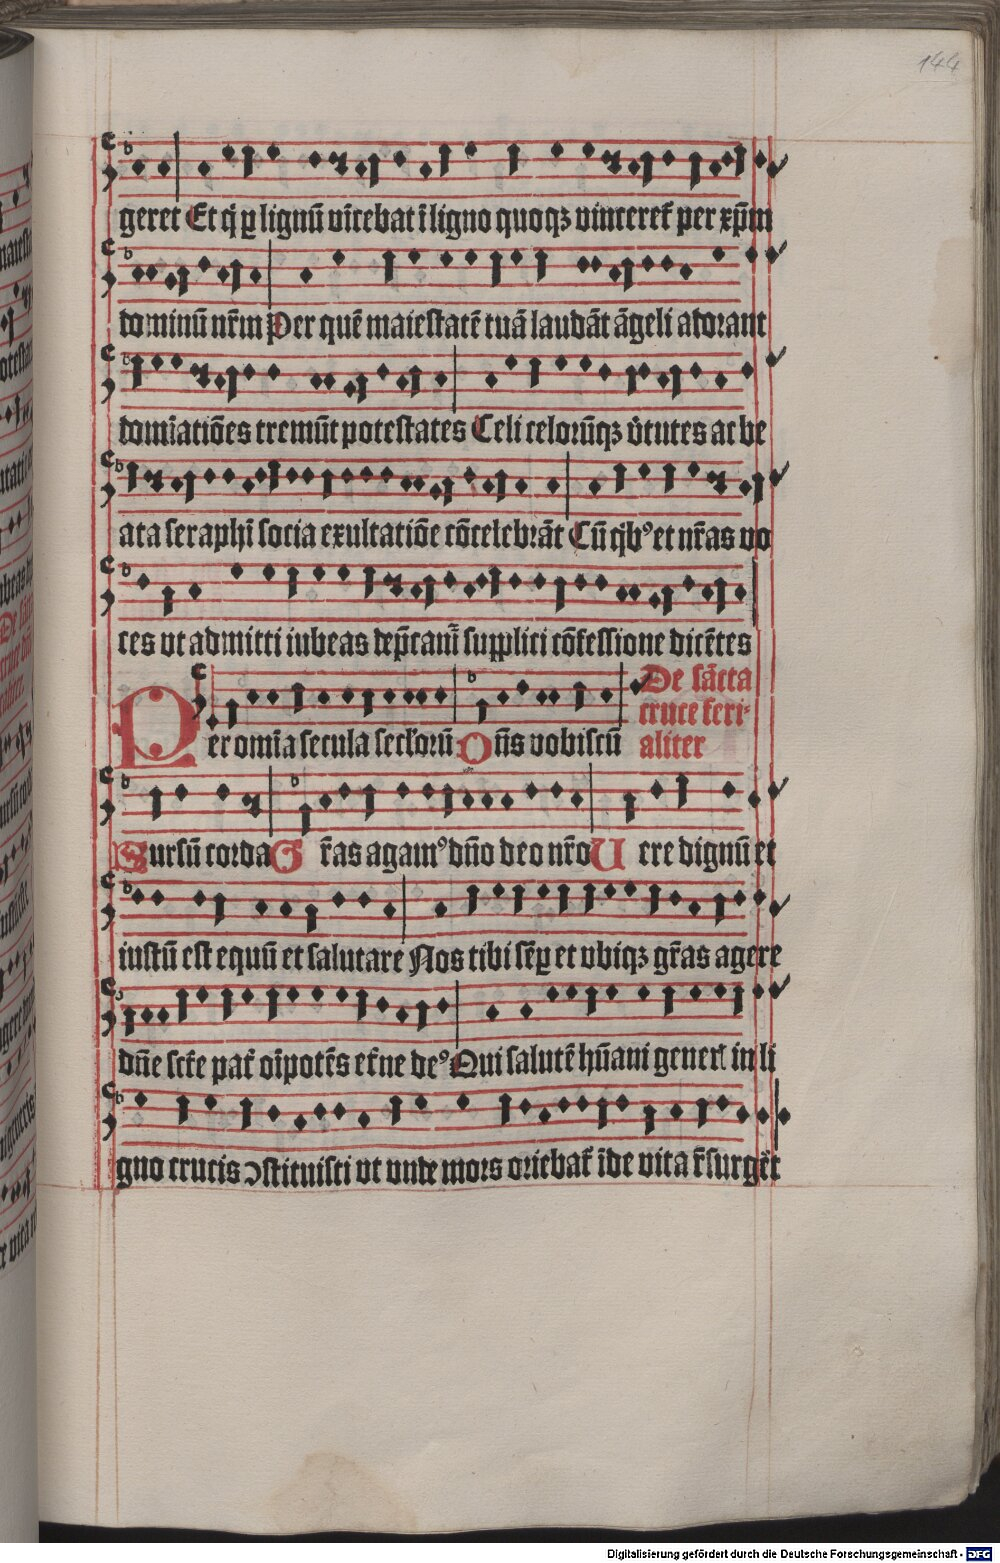 144
geret Et q̇ ꝑ lignū vīcebat ī ligno quoqꝫ vinceret̄ per xp̄m
dominū nr̄m Per quē maiestatē tuā laudāt āgeli adorant
domīatiōes tremūt potestates Celi celorūqꝫ v̇tutes ac be
ata seraphī socia exultatiōe cōcelebrāt Cū q̇bꝰ et nr̄as vo
ces vt admitti iubeas dep̄camur̄ supplici cōfessione dicētes
Per omīa secula secl̓orū Dn̄s vobiscū
De sācta
cruce feri-
aliter
Sursū corda Gr̄as agamꝰ dn̄o deo nr̄o Uere dignū et
iustū est equū et salutare Nos tibi sēꝑ et vbiqꝫ gr̄as agere
dn̄e sct̄e pat̄ oīpotēs et̄ne deꝰ Qui salutē hūani generꝭ in li
gno crucis ꝯstituisti vt vnde mors oriebat̄ īde vita r̄surgēt
Digitalisierung gefördert durch die Deutsche Forschungsgemeinschaft - DFG